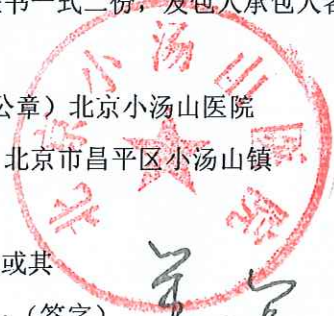 书一式二份，发包人承包人各
公章）北京小汤山医院
北京市昌平区小汤山镇
或其
（签字）
北京小汤山医院